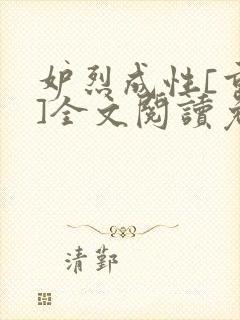 妒烈成性[重
]全文閱讀免
清鄴